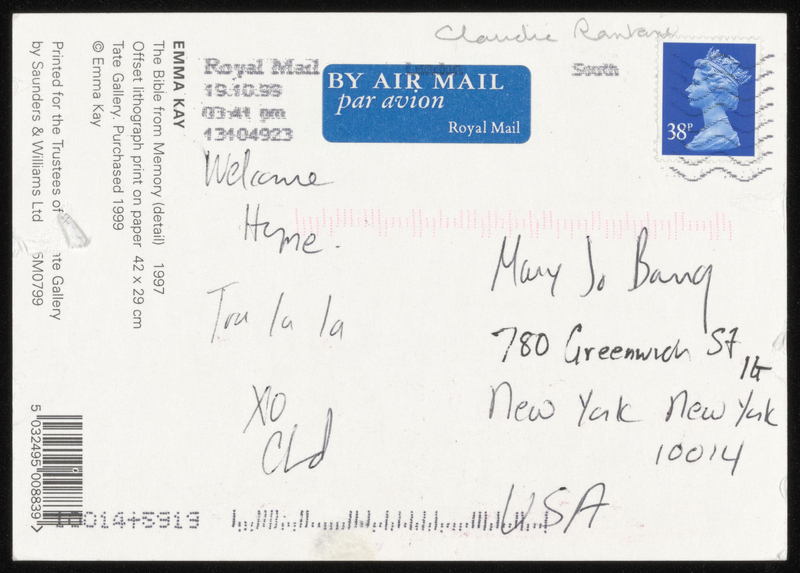 Claudia Rankine
Royal Mail
London
South
19.10.99
03:41 pm
13104923
BY AIR MAIL
par avion
Royal Mail
38P
Welcome
Home.
Tra la la
XO
Cld
Mary Jo Bang
780 Greenwich St
1G
New York New York
10014
USA
EMMA KAY
The Bible from Memory (detail) 1997
Offset lithograph print on paper 42 x 29 cm
Tate Gallery. Purchased 1999
© Emma Kay
Printed for the Trustees of ate Gallery
by Saunders & Williams Ltd SM0799
5 032495 008839 >
10014+5919